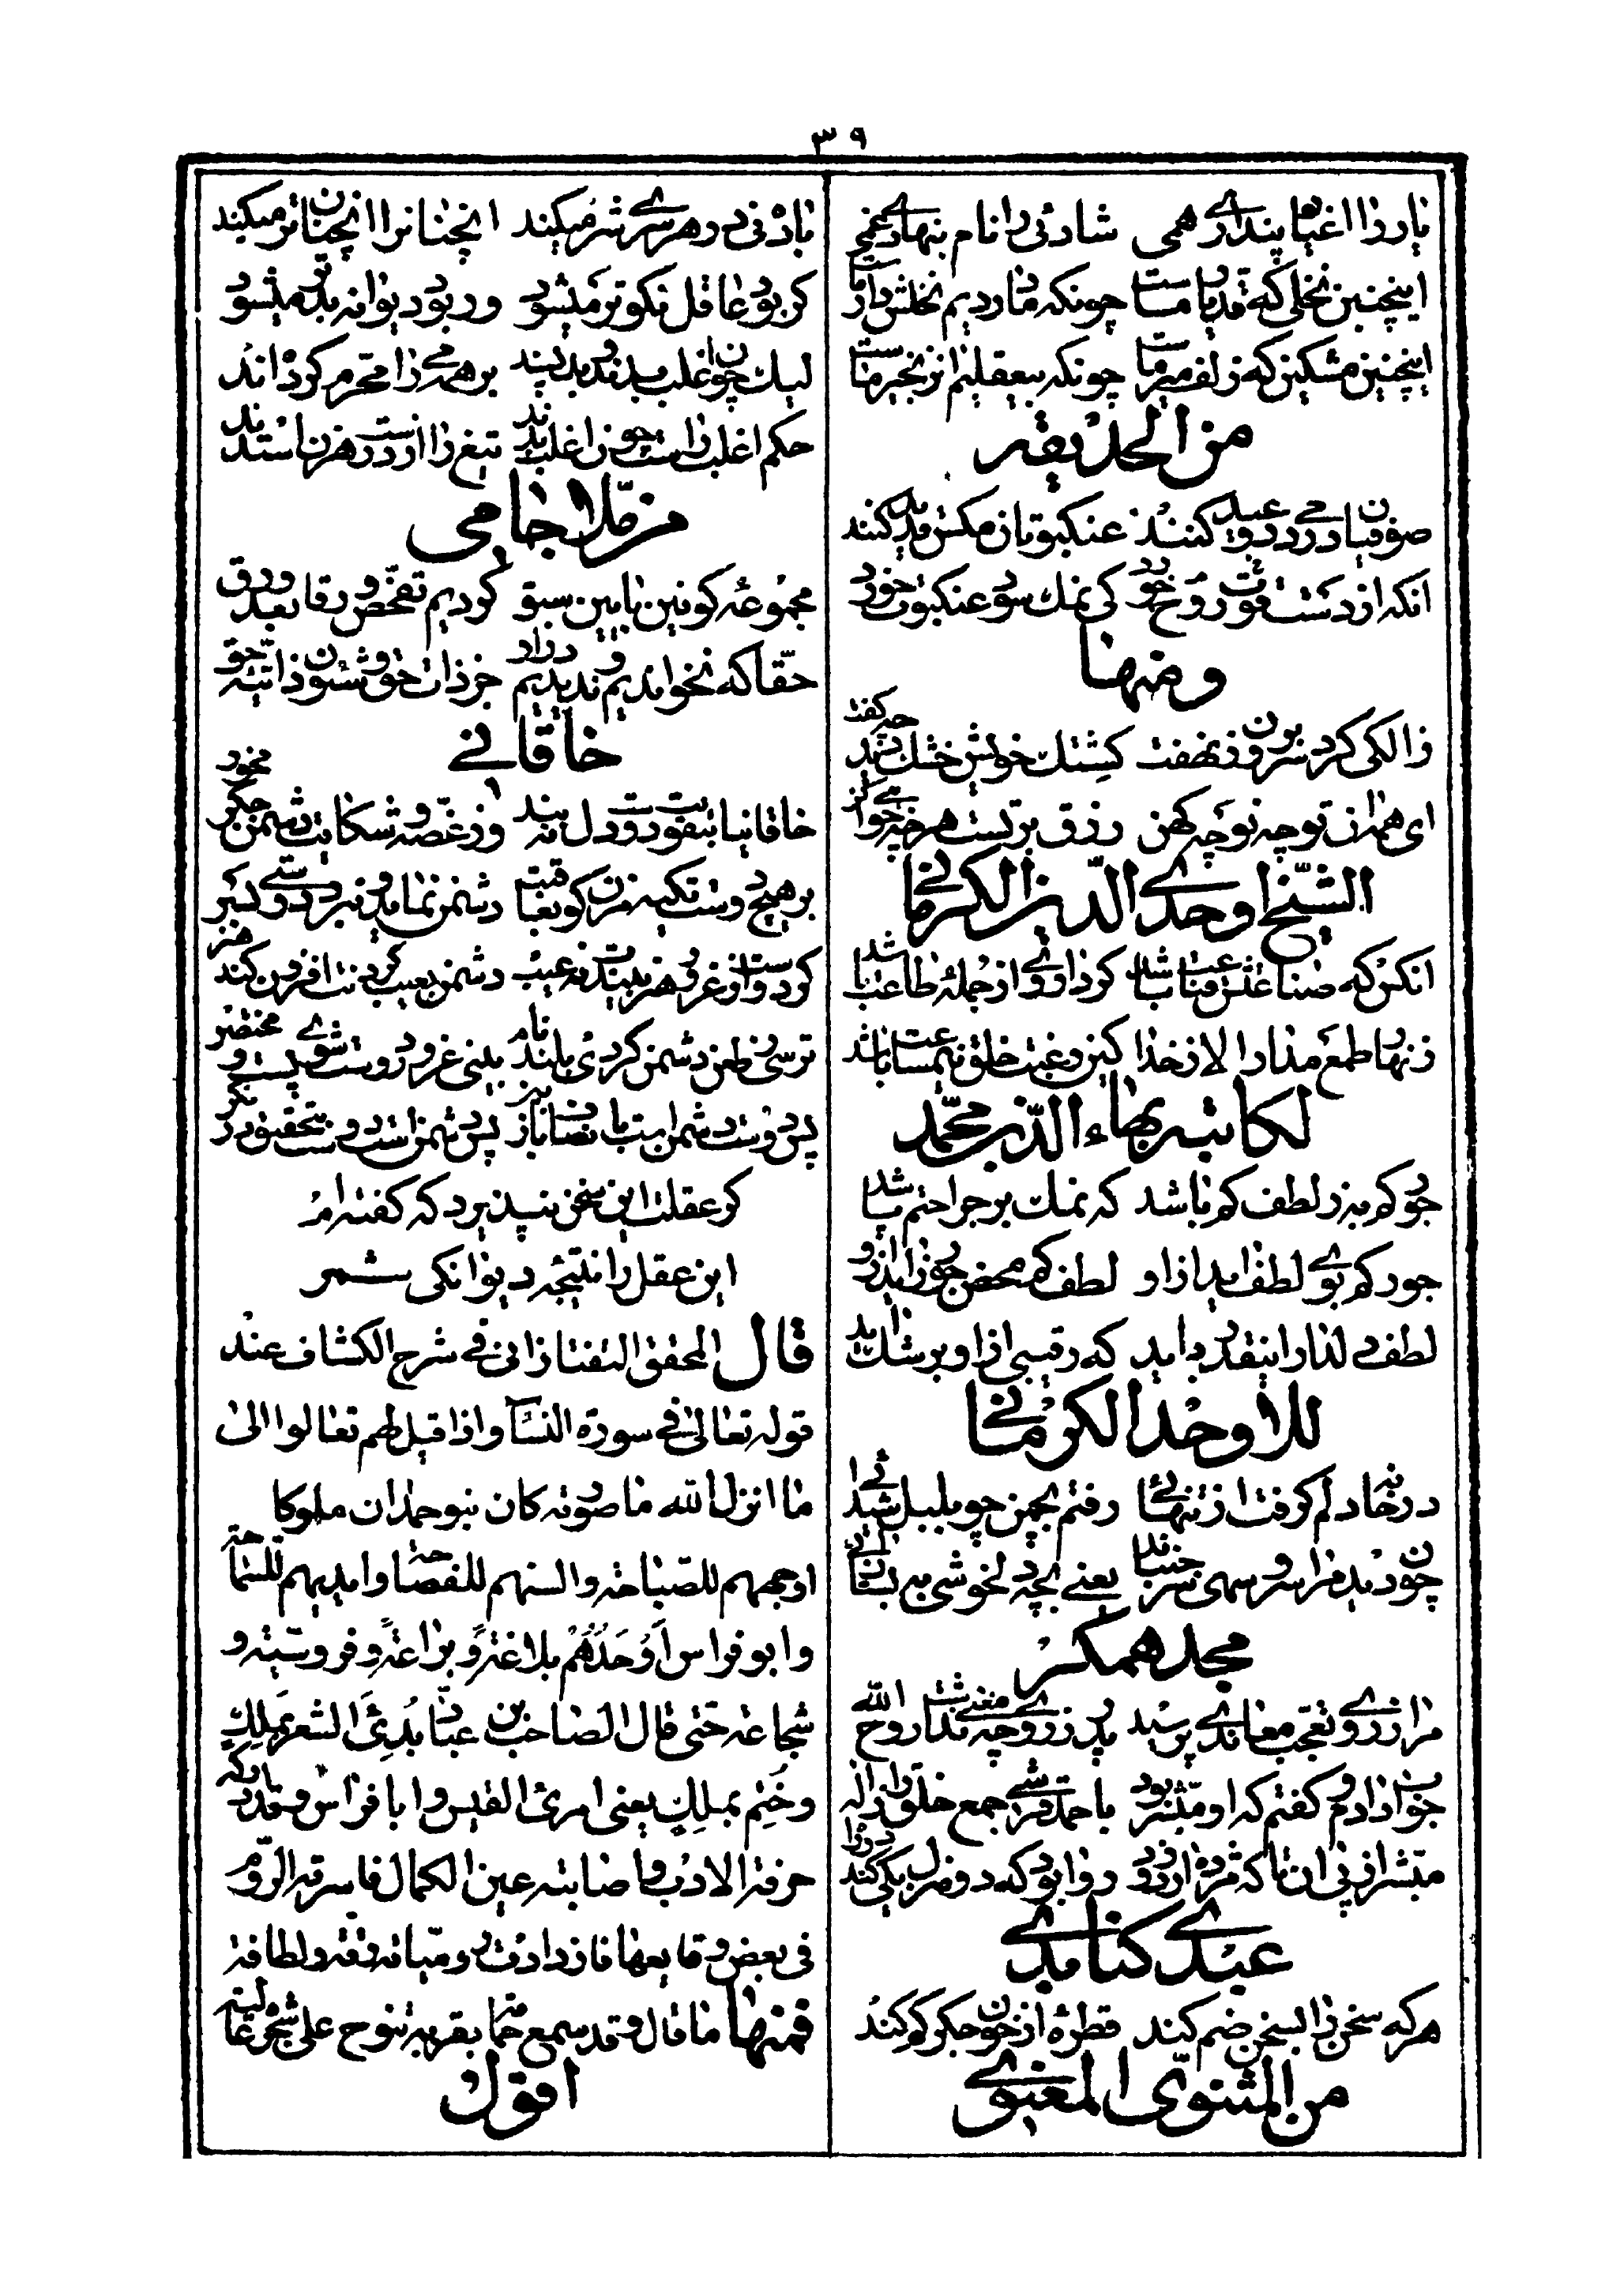 ٣٩
یار را اغیار پنداری همی شادئی را نام بنهادی غمی
اینچنین نخلی که قد یار ماست چونکه ما دزدیم نخلش دار ماست
اینچنین مشکین که زلف میر ماست چونکه بیعقلیم آن زنجیر ماست
من الحدیقه
صوفیان در دمی دو عید کنند عنکبوتان مکس قدید کنند
آنکه از دست روح قوت خورد کی نمک سود عنکبوت خورد
ومنها
زالکی کرد سر برون ز نهفت کشتک خویش خشک دید چه گفت
ای هم آن تو چه نو چه کهن رزق بر تست هر چه خواهی کن
الشیخ اوحدی الدین الکرمانی
آنکس که صناعتش قناعت باشد کردار وی از جمله طاعت باشد
زنهار طمع مدار الا ز خدا کین رغبت خلق نیم ساعت باشد
لکاتبه بهاء الدین محمد
جور کم به ز لطف کم باشد که نمک بر جراحتم پاشد
جور کم بوی لطف آید از او لطف کم محض جور زاید از او
لطف دلدار اینقدر باید که رقیبی از او برشک آید
للاوحد الکرمانی
در خانه دلم گرفت از تنهائی رفتم بچمن چو بلبل شیدائی
چون دید مرا سرو سهی سر جنبانید یعنی بچه دلخوشی به بستان آئی
مجد همکر
مرا ز روی تعجب معاندی پرسید پدر ز روی چه معنی نداشت روح الله
جواب دادم و گفتم که او مبشر بود باحمد قرشی جمع خلق را ز اله
مبشر از پی آن تا که مژده آرد زود روا بود که دو منزل یکی کند در راه
عبدی کنابدی
هر که سخن را بسخن ضم کند قطره از خون جگر کم کند
من المثنوی المعنوی
باده نی در هر سری شر میکند آنچنانرا آنچنان تر میکند
گر بود عاقل نکوتر میشود ور بود دیوانه بدتر میشود
لیک چون اغلب بدند و بد پسند بر همه می را محرم کرده اند
حکم اغلب راست چون اغلب بدند تیغ را از دست رهزن استدند
من ملا جامی
مجموعه کونین بآیین سبق کردیم تفحص ورقا بعد ورق
حقا که نخواندیم و ندیدیم در او جز ذات حق و شئون ذاتیه حق
خاقانی
خاقانیا بتقویت دوست دل مبند وز غصه و شکایت دشمن جگر مخور
بر هیچ دوست تکیه مزن کو بعاقبت دشمن نماید و نبرد دوستی بسر
گر دوست از غرور هنر بیند نه عیب دشمن بعیب کردنت افزون کند هنر
ترسی ز طعن دشمن و گردی بلند نام بینی غرور دوست شوی پست و مختصر
پس دوست دشمن است بانصاف باز بین پس دشمن است دوست بتحقیق در نگر
گر عقلت این سخن نپذیرد که گفته ام
این عقل را نتیجه دیوانگی شمر
قال المحقق التفتازانی فی شرح الکشاف عند
قوله تعالی فی سورة النسآء واذا قیل لهم تعالوا الی
ما انزل الله ما صورته کان بنو حمدان ملوکا
اوجههم للصباحة والسنهم للفصاحة وایدیهم للسماحة
وابو فراس اَوْحَدُهُمْ بلاغةً وبراعةً وفروسیته و
شجاعة حتی قال الصاحب بن عباد بُدِئَ الشعر بملِكٍ
وخُتِم بملِكٍ یعنی امرئ القیس وابا فراس وقد ادرکه
حرفة الادب واصابته عین الکمال فاسرته الروم
فی بعض وقایعها فازدادت رومیاته رقة ولطافة
فمنها ما قال وقد سمع حمامة بقربه تنوح علی شجرة عالیة
اقول